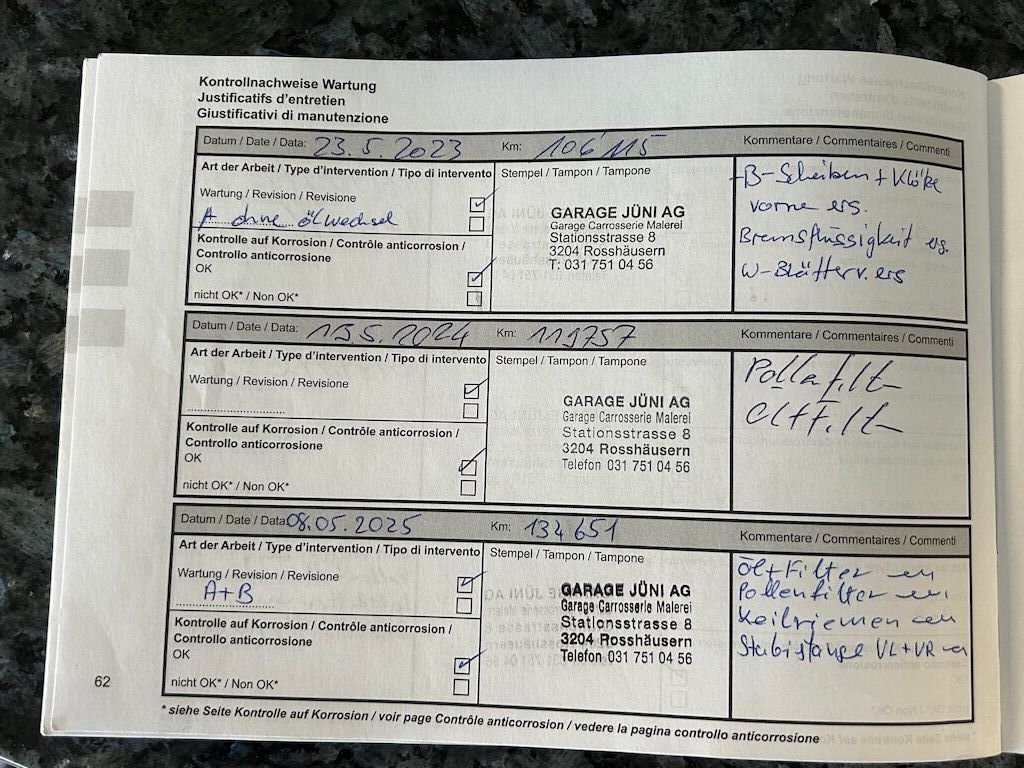 Kontrollnachweise Wartung
Justificatifs d'entretien
Giustificativi di manutenzione
Datum / Date / Data: 23.5.2023 Km: 106'115 Kommentare / Commentaires / Commenti
Art der Arbeit / Type d'intervention / Tipo di intervento
Wartung / Revision / Revisione
A ohne ölwechsel
Kontrolle auf Korrosion / Contrôle anticorrosion /
Controllo anticorrosione
OK
nicht OK* / Non OK*
Stempel / Tampon / Tampone
GARAGE JÜNI AG
Garage Carrosserie Malerei
Stationsstrasse 8
3204 Rosshäusern
T: 031 751 04 56
-B-Scheiben + Klötze
vorne ers.
Bremsflüssigkeit ers.
W-Blätter v. ers
Datum / Date / Data: 13.5.2024 Km: 119757 Kommentare / Commentaires / Commenti
Art der Arbeit / Type d'intervention / Tipo di intervento
Wartung / Revision / Revisione
Kontrolle auf Korrosion / Contrôle anticorrosion /
Controllo anticorrosione
OK
nicht OK* / Non OK*
Stempel / Tampon / Tampone
GARAGE JÜNI AG
Garage Carrosserie Malerei
Stationsstrasse 8
3204 Rosshäusern
Telefon 031 751 04 56
Datum / Date / Data 08.05.2025 Km: 134651 Kommentare / Commentaires / Commenti
Art der Arbeit / Type d'intervention / Tipo di intervento
Wartung / Revision / Revisione
A+B
Kontrolle auf Korrosion / Contrôle anticorrosion /
Controllo anticorrosione
OK
nicht OK* / Non OK*
Stempel / Tampon / Tampone
GARAGE JÜNI AG
Garage Carrosserie Malerei
Stationsstrasse 8
3204 Rosshäusern
Telefon 031 751 04 56
Öl+Filter
Pollenfilter
Keilriemen
Stabistange VL+VR
62
* siehe Seite Kontrolle auf Korrosion / voir page Contrôle anticorrosion / vedere la pagina controllo anticorrosione